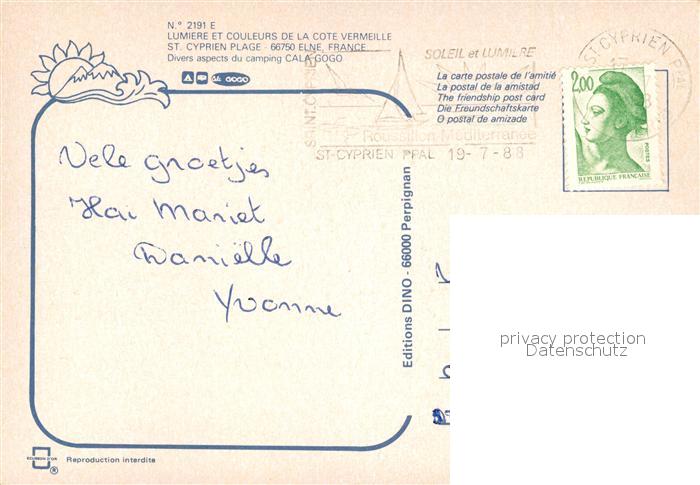 N.º 2191 E
LUMIERE ET COULEURS DE LA COTE VERMEILLE
ST. CYPRIEN PLAGE - 66750 ELNE, FRANCE
Divers aspects du camping CALA GOGO
GOGO
SOLEIL et LUMIERE
SAINT CYPRIEN
Roussillon Méditerranée
ST-CYPRIEN PPAL 19-7-88
La carte postale de l'amitié
La postal de la amistad
The friendship post card
Die Freundschaftskarte
O postal de amizade
ST-CYPRIEN PAL
2,00
POSTES
REPUBLIQUE FRANÇAISE
Vele groetjes
Hai Mariet
Daniëlle
Yvonne
Editions DINO - 66000 Perpignan
privacy protection
Datenschutz
ECUSSON D'OR
®
Reproduction interdite